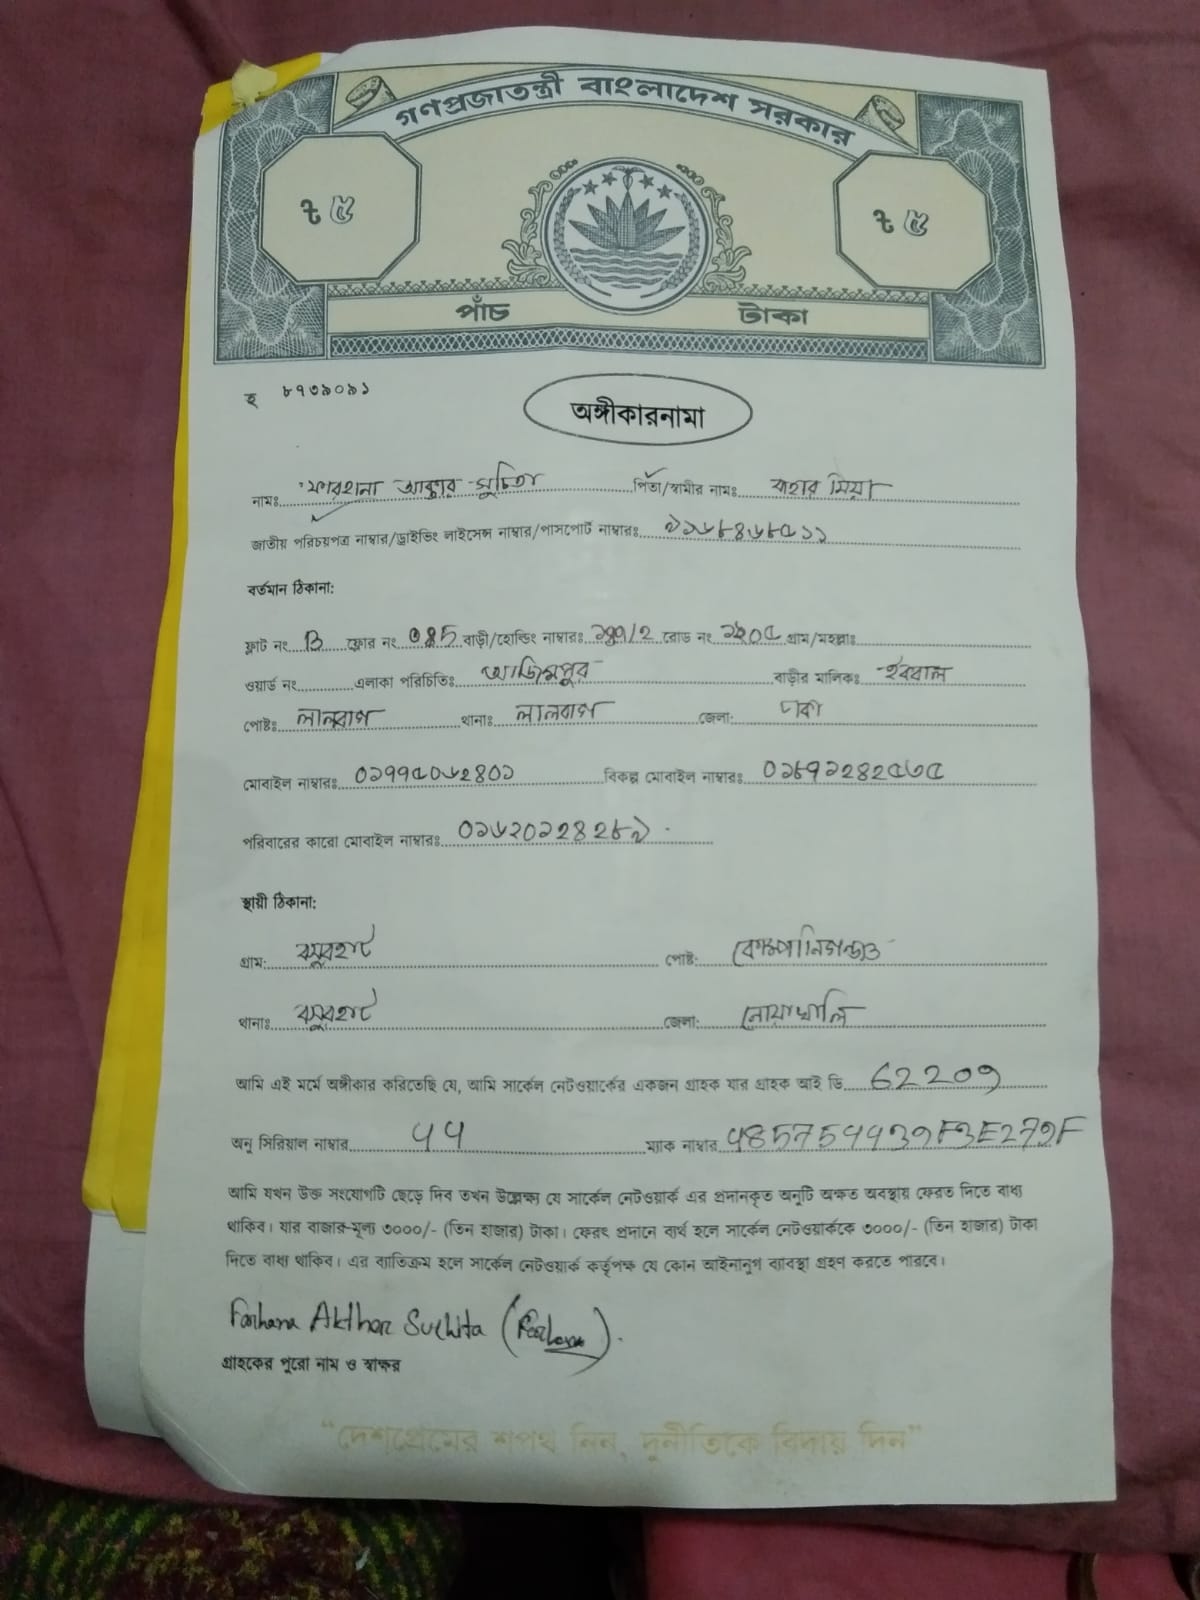 গণপ্রজাতন্ত্রী বাংলাদেশ সরকার
৳ ৫ ৳ ৫
পাঁচ টাকা
হ ৮৭৩৯০৯১
অঙ্গীকারনামা
নামঃ ফারহানা আক্তার সুচিতা পিতা/স্বামীর নামঃ বাহার মিয়া
জাতীয় পরিচয়পত্র নাম্বার/ড্রাইভিং লাইসেন্স নাম্বার/পাসপোর্ট নাম্বারঃ ৯১৬৮৪৬৮৫১১
বর্তমান ঠিকানা:
ফ্লাট নং B ফ্লোর নং বাড়ী/হোল্ডিং নাম্বারঃ রোড নং গ্রাম/মহল্লাঃ
ওয়ার্ড নং এলাকা পরিচিতিঃ আজিমপুর বাড়ীর মালিকঃ ইকবাল
পোষ্টঃ লালবাগ থানাঃ লালবাগ জেলা: ঢাকা
মোবাইল নাম্বারঃ ০১৭৭৫০৬২৪০১ বিকল্প মোবাইল নাম্বারঃ ০১৮৭১২৪২৫৩৫
পরিবারের কারো মোবাইল নাম্বারঃ ০১৬২০১২৪২৮৯
স্থায়ী ঠিকানা:
গ্রাম: বসুরহাট পোষ্ট: কোম্পানিগঞ্জ
থানাঃ বসুরহাট জেলা: নোয়াখালি
আমি এই মর্মে অঙ্গীকার করিতেছি যে, আমি সার্কেল নেটওয়ার্কের একজন গ্রাহক যার গ্রাহক আই ডি 62209
অনু সিরিয়াল নাম্বার 44 ম্যাক নাম্বার
আমি যখন উক্ত সংযোগটি ছেড়ে দিব তখন উল্লেক্ষ্য যে সার্কেল নেটওয়ার্ক এর প্রদানকৃত অনুটি অক্ষত অবস্থায় ফেরত দিতে বাধ্য
থাকিব। যার বাজার-মূল্য ৩০০০/- (তিন হাজার) টাকা। ফেরৎ প্রদানে ব্যর্থ হলে সার্কেল নেটওয়ার্ককে ৩০০০/- (তিন হাজার) টাকা
দিতে বাধ্য থাকিব। এর ব্যতিক্রম হলে সার্কেল নেটওয়ার্ক কর্তৃপক্ষ যে কোন আইনানুগ ব্যাবস্থা গ্রহণ করতে পারবে।
Farhana Akther Suchita (Farhana).
গ্রাহকের পুরো নাম ও স্বাক্ষর
“দেশপ্রেমের শপথ নিন, দুর্নীতিকে বিদায় দিন”